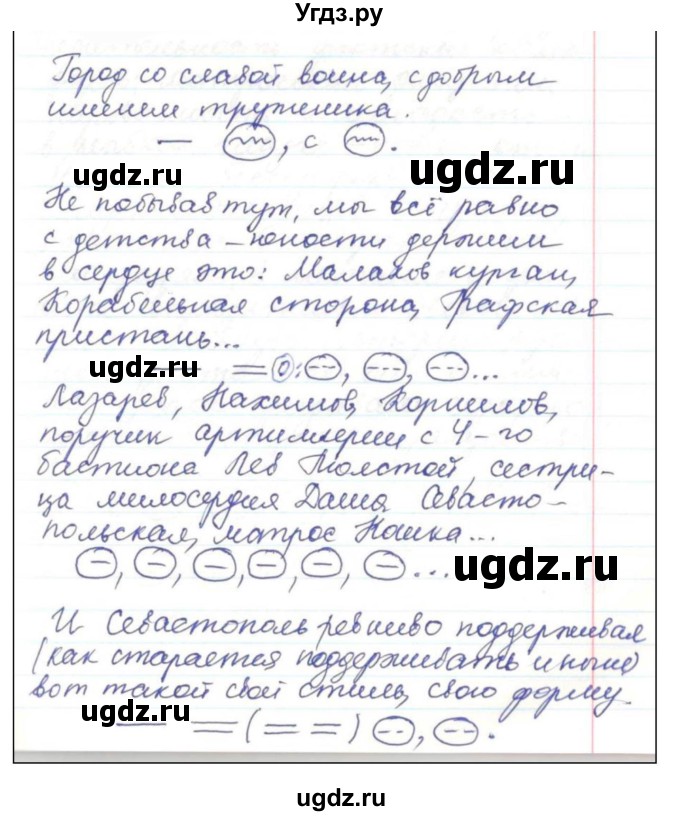 Угдз.ру
Город со славой воина, с добрым
именем труженика.
, с .
ugdz.ru
ugdz.ru
Не побывав тут, мы всё равно
с детства – юности держим
в сердце это: Малахов курган,
Корабельная сторона, Графская
пристань...
ugdz.ru
О: , , ...
ugdz.ru
Лазарев, Нахимов, Корнилов,
поручик артиллерии с 4-го
бастиона Лев Толстой, сестри-
ца милосердия Даша Севасто-
польская, матрос Кошка...
, , , , , ...
ugdz.ru
И Севастополь ревниво поддерживал
(как старается поддерживать и ныне)
вот такой свой стиль, свою форму.
ugdz.ru
( ) , .
ugdz.ru